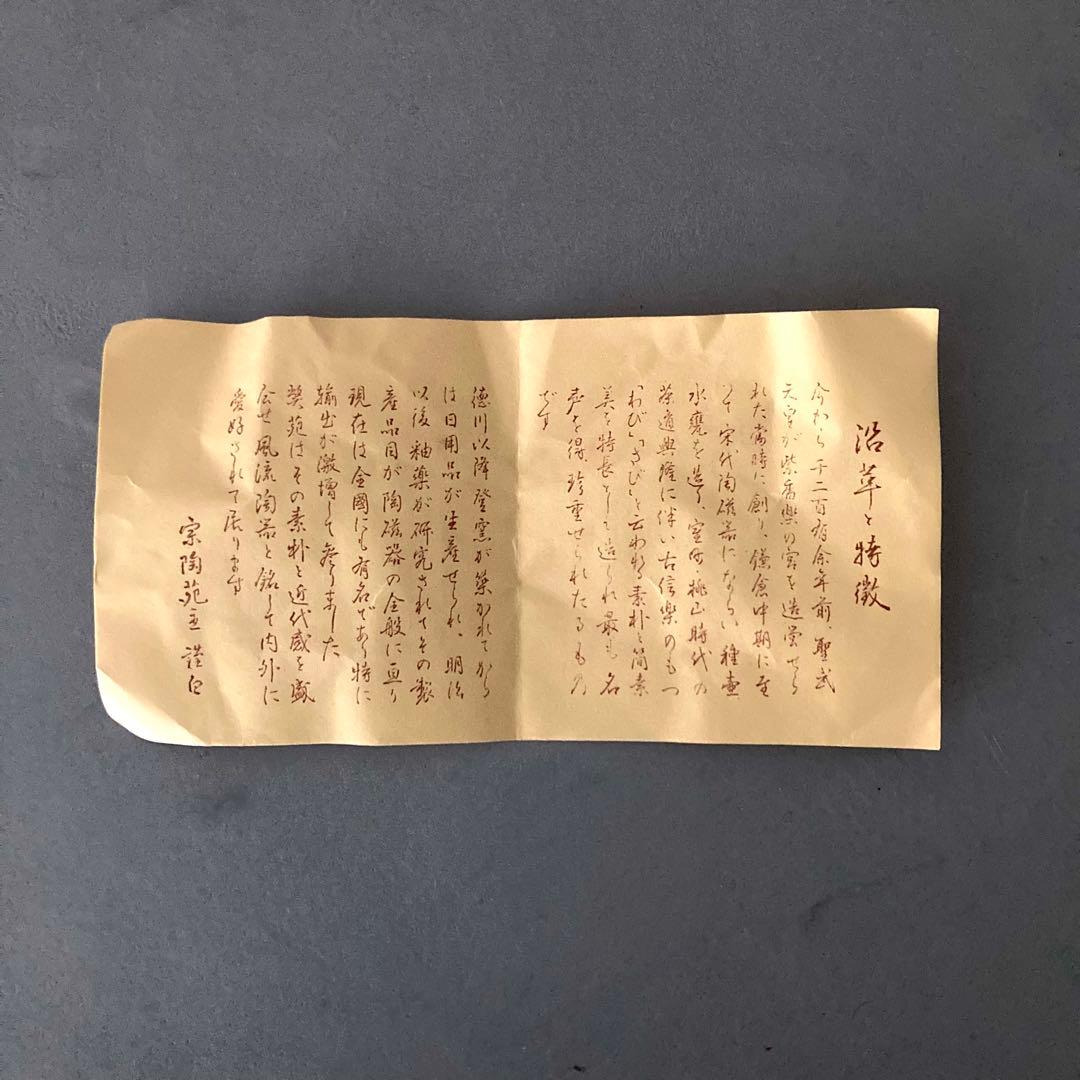 沿革と特徴
今から千二百有余年前、聖武
天皇が紫香楽の宮を造営せら
れた當時に創り、鎌倉中期に至
って宋代陶磁器にならい種壷
水甕を造り、室町桃山時代の
茶道興隆に伴い古信楽のもつ
「わび」「さび」と云われる素朴と簡素
美を特長として造られ最も名
声を得、珍重せられたるもの
です
徳川以降登窯が築かれてから
は日用品が生産せられ、明治
以後釉薬が研究されてその製
産品目が陶磁器の全般に亘り
現在は全國にも有名であり特に
輸出が激増して参りました
弊苑はその素朴と近代感を盛
合せ風流陶器と銘して内外に
愛好されて居ります
宗陶苑主 謹白